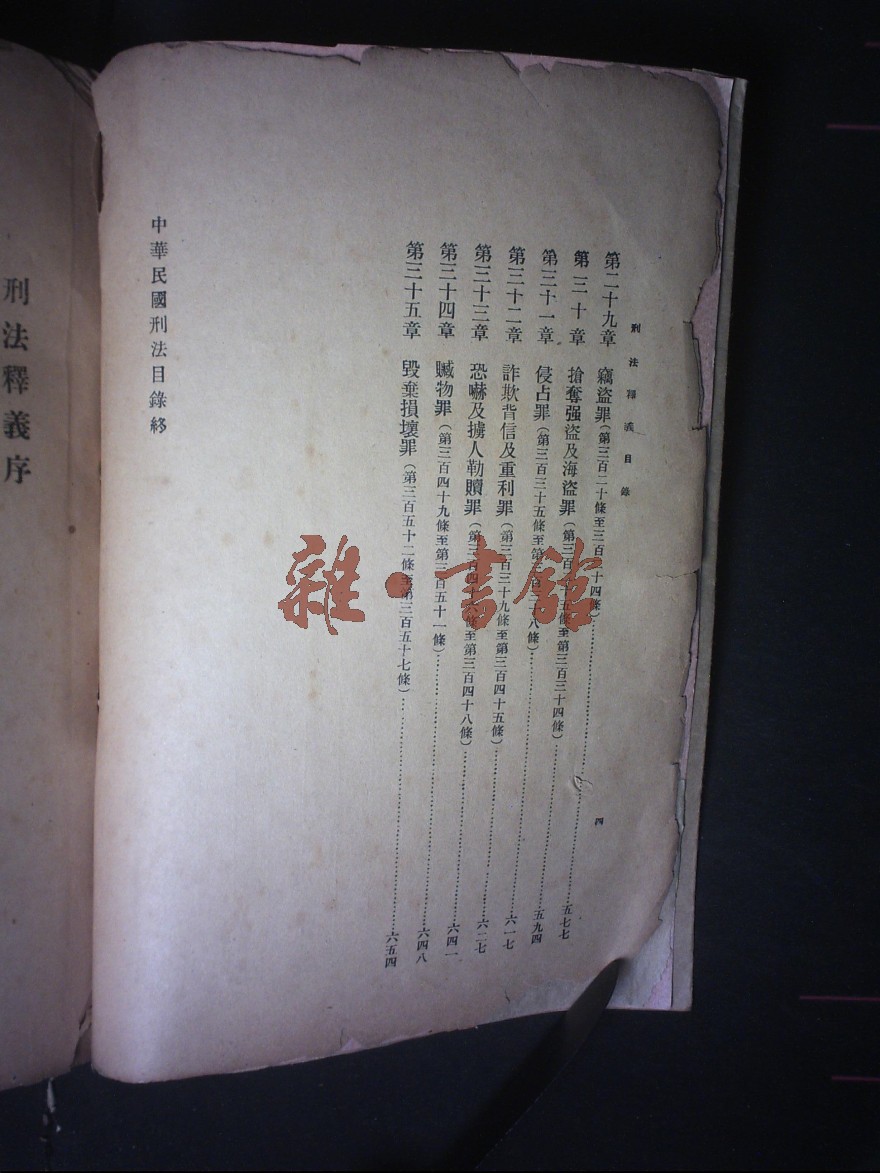 刑法釋義目錄　四
第二十九章　竊盜罪（第三百二十條至三百十四條）……五七七
第三十章　搶奪强盜及海盜罪（第三百十五條至第三百三十四條）……五九四
第三十一章　侵占罪（第三百三十五條至第三百三十八條）……六一七
第三十二章　詐欺背信及重利罪（第三百三十九條至第三百四十五條）……六二七
第三十三章　恐嚇及擄人勒贖罪（第三百四十六條至第三百四十八條）……六四一
第三十四章　贓物罪（第三百四十九條至第三百五十一條）……六四八
第三十五章　毀棄損壞罪（第三百五十二條至第三百五十七條）……六五四
中華民國刑法目錄終
刑法釋義序
雜·書館